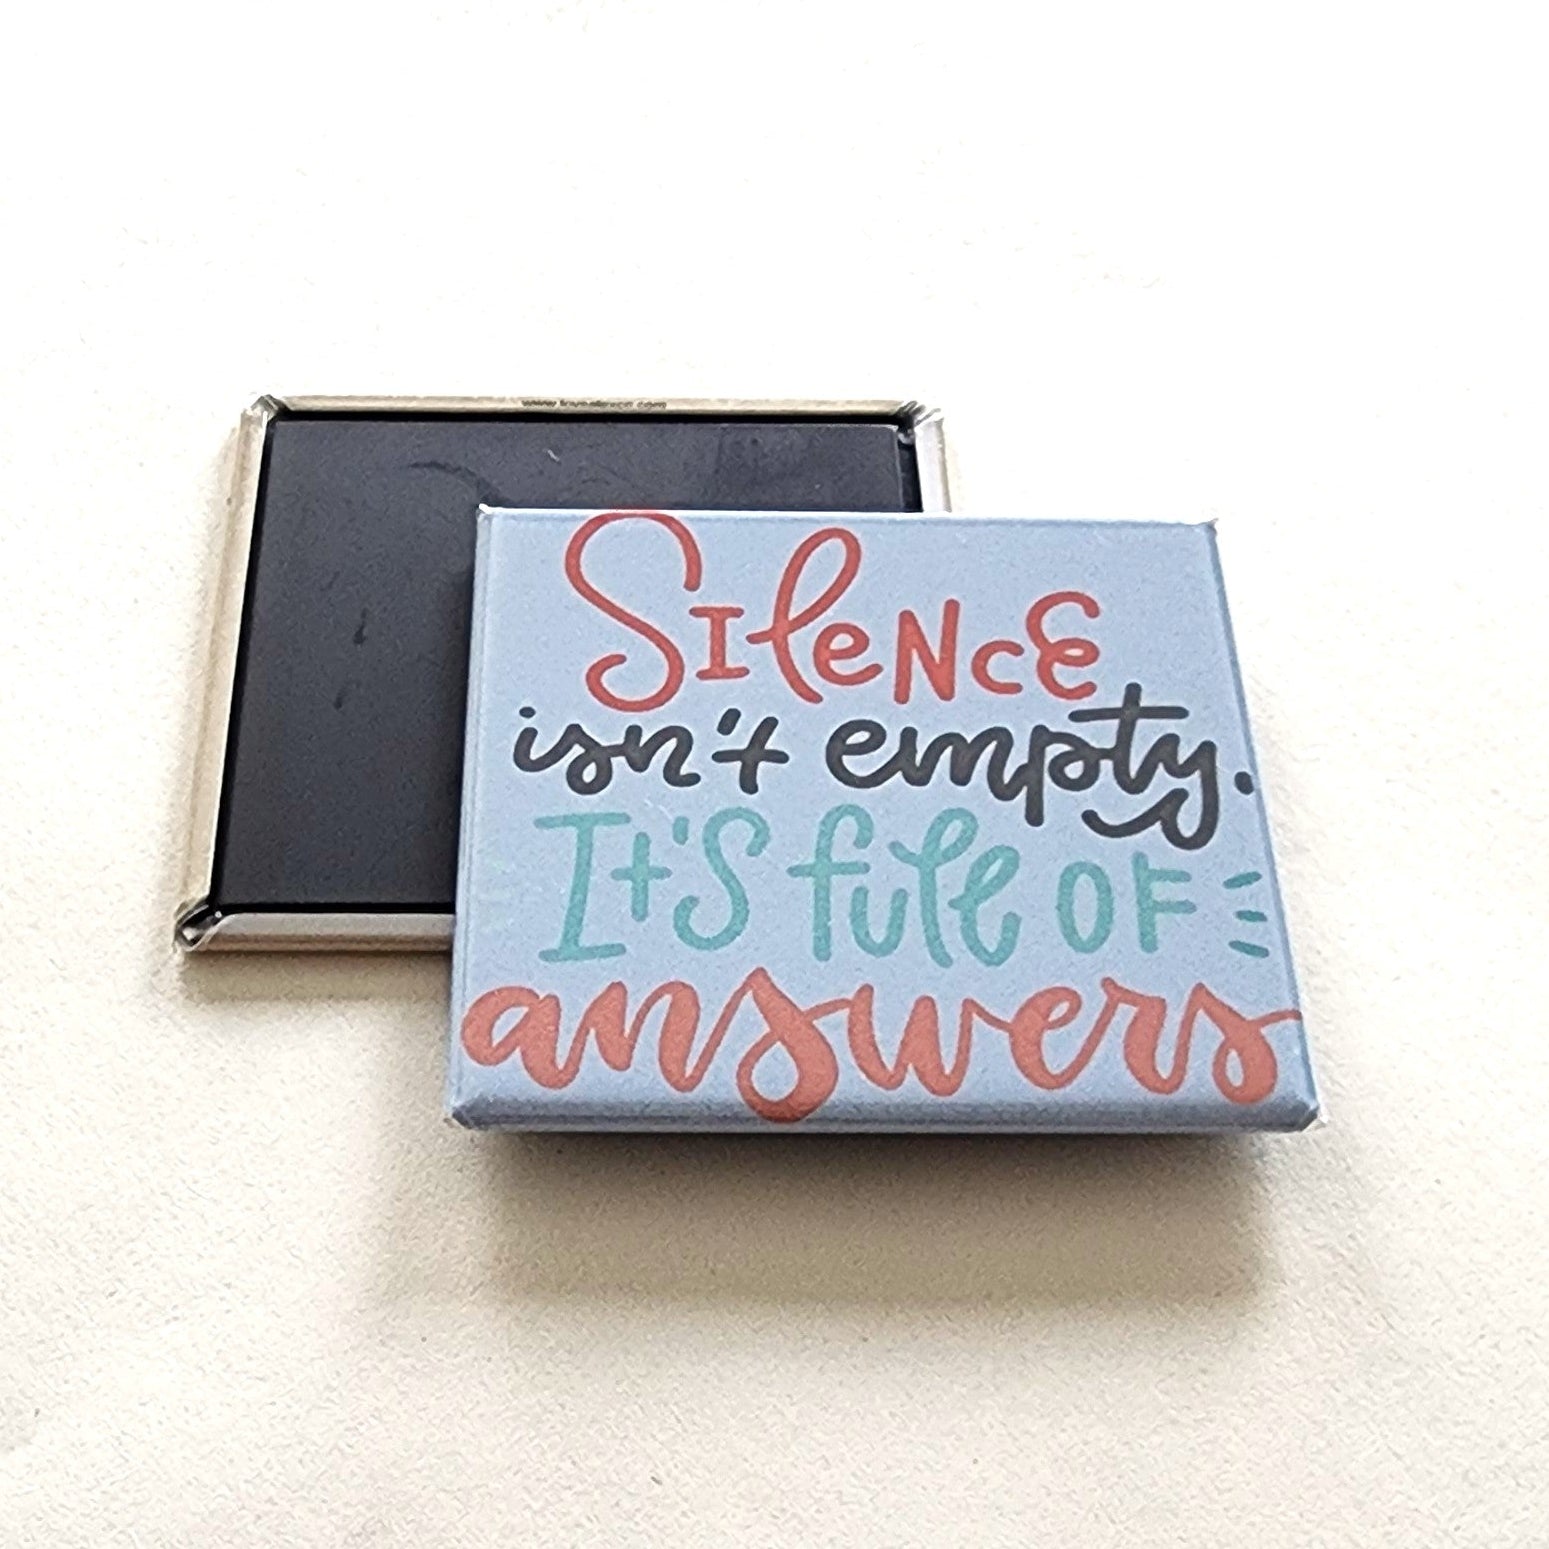 SILeNCE
isn't empty.
It's full OF
answers